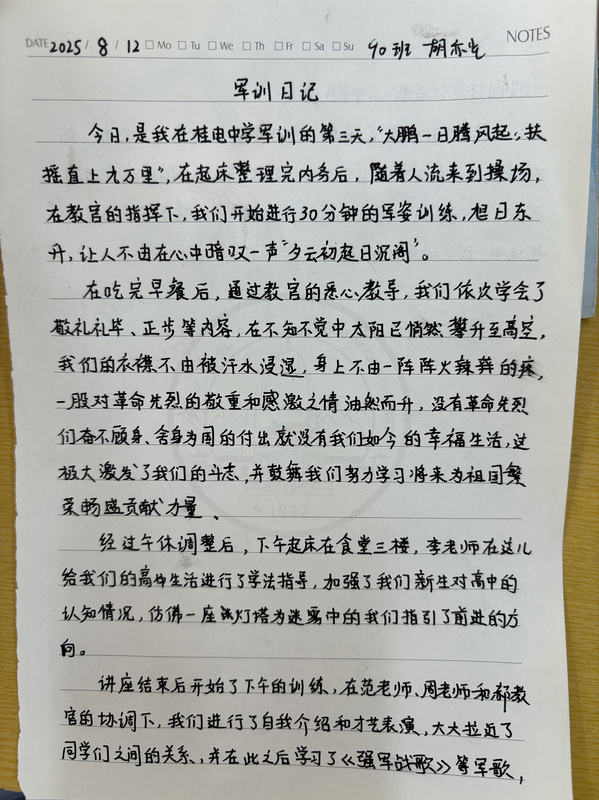 DATE 2025 / 8 / 12 □ Mo □ Tu □ We □ Th □ Fr □ Sa □ Su 90班 胡亦 NOTES
军训日记
今日,是我在桂电中学军训的第三天,“大鹏一日腾风起,扶
摇直上九万里”,在起床整理完内务后,随着人流来到操场,
在教官的指挥下,我们开始进行30分钟的军姿训练,旭日东
升,让人不由在心中暗叹一声“夕云初起日沉阁”。
在吃完早餐后,通过教官的悉心教导,我们依次学会了
敬礼礼毕、正步等内容,在不知不觉中太阳已悄然攀升至高空,
我们的衣襟不由被汗水浸湿,身上不由一阵阵火辣辣的疼,
一股对革命先烈的敬重和感激之情油然而升,没有革命先烈
们奋不顾身、舍身为国的付出就没有我们如今的幸福生活,这
极大激发了我们的斗志,并鼓舞我们努力学习将来为祖国繁
荣畅盛贡献力量、
经过午休调整后,下午起床在食堂三楼,李老师在这儿
给我们的高中生活进行了学法指导,加强了我们新生对高中的
认知情况,仿佛一座灯塔为迷雾中的我们指引了前进的方
向。
讲座结束后开始了下午的训练,在范老师、周老师和郝教
官的协调下,我们进行了自我介绍和才艺表演,大大拉近了
同学们之间的关系,并在此之后学习了《强军战歌》等军歌,
1932